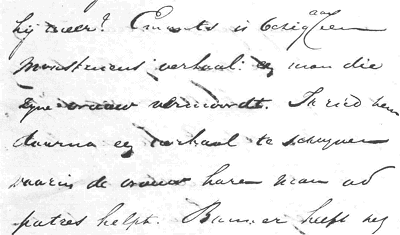 hij weer? Emants is bezig aan een
monstrueus verhaal: een man die
zijne vrouw vermoordt. Ik ried hem
daarna een verhaal te schrijven
waarin de vrouw haren man ad
patres helpt. Banier heeft nog